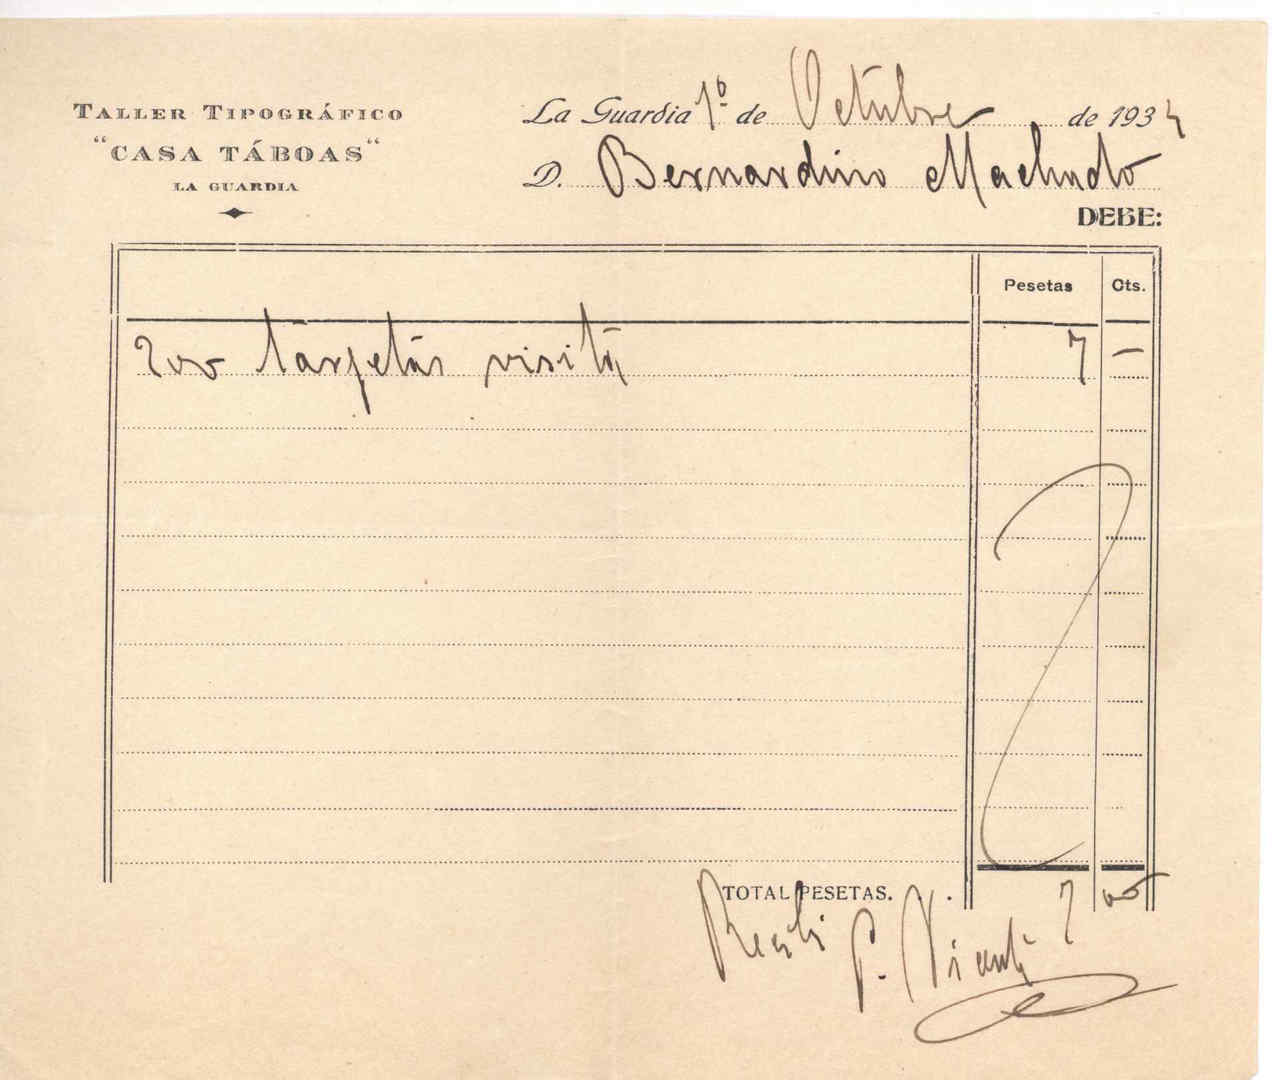 TALLER TIPOGRÁFICO
“CASA TÁBOAS“
LA GUARDIA
La Guardia 1º de Octubre de 1934
D. Bernardino Machado
DEBE:
Pesetas Cts.
200 tarjetas visita 7 —
TOTAL PESETAS. . . 7 00
Recibí P. Vicente